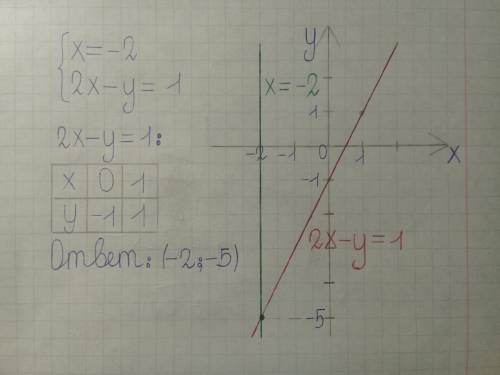 { x = -2
2x - y = 1
2x - y = 1:
x 0 1
y -1 1
Ответ: (-2; -5)
y
x = -2
1
-2 -1 0 1 x
-1
2x - y = 1
-5